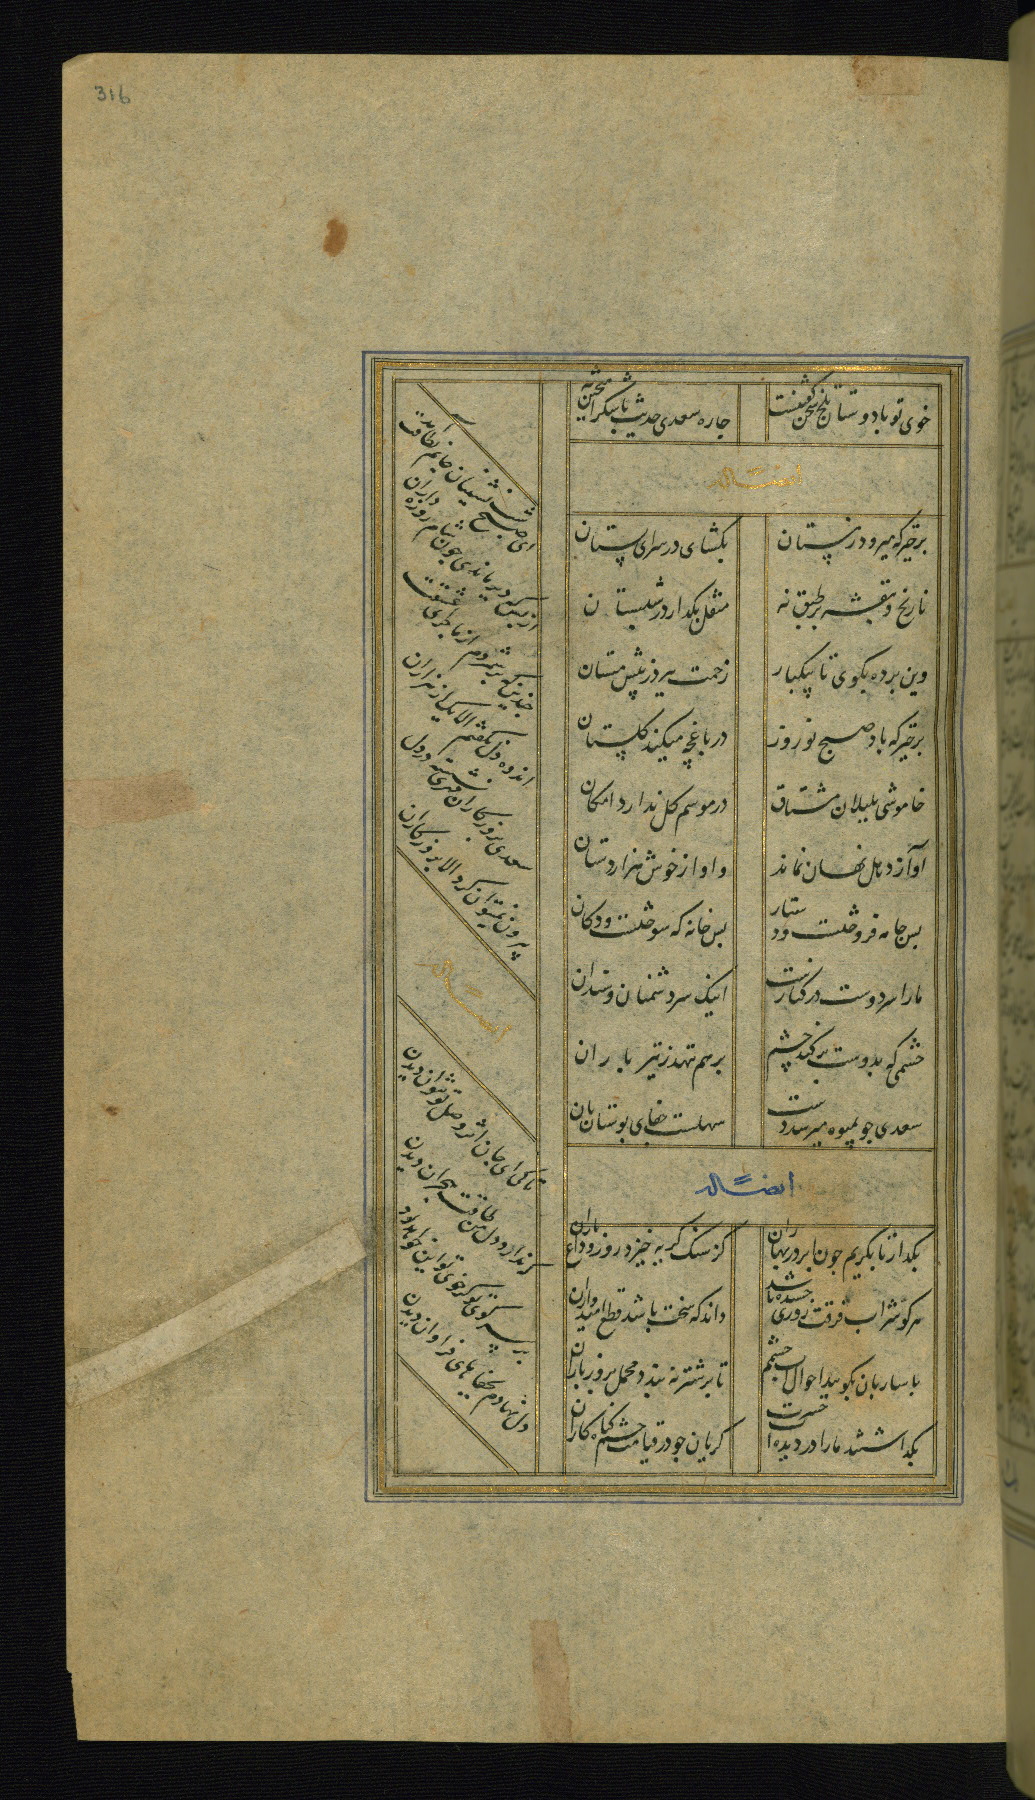 316
خوی تو با دوستان تلخ سخن گفتنست
چاره سعدی حدیث با شکر آمیختن
ایضاً له
برخیز که میرود زمستان
بکشای در سرای بستان
نارنج و بنفشه بر طبق نه
منقل بکذار در شبستان
وین پرده بکوی تا بیکبار
زحمت ببرد ز پیش مستان
برخیز که باد صبح نوروز
در باغچه میکند کلستان
خاموشی بلبلان مشتاق
در موسم کل ندارد امکان
آواز دهل نهان نماند
و آواز خوش هزار دستان
بس جامه فروختست و دستار
بس خانه که سوختست و دکان
ما را سر دوست در کنارست
اینک سر دشمنان و سندان
چشمی که بدوست بر کند چشم
بر هم ننهد ز تیر باران
سعدی چو بمیوه میرسد دست
سهلست جفای بوستان بان
ایضاً له
بکذار تا بکریم چون ابر در بهاران
کز سنک کریه خیزد روز وداع یاران
هر کو شراب فرقت روزی چشیده باشد
داند که سخت باشد قطع امیدواران
با ساربان بکویید احوال آب چشمم
تا بر شتر نه بندد محمل بروز باران
بکذاشتند ما را در دیده آب حسرت
کریان چو در قیامت چشم کناه کاران
ای صبح شب نشینان جانم بطاقت آمد
از بس که دیر ماندی چون شام روزه داران
چندین که بر شمردم از ماجرای عشقت
اندوه دل نکفتم الا یک از هزاران
سعدی بروزکاران مهری نشسته در دل
بیرون نمیتوان کرد الا بروزکاران
ایضاً له
تا کی ای جان اثر وصل تو نتوان دیدن
که ندارد دل من طاقت هجران دیدن
بر سر کوی تو کر خوی تو این خواهد بود
دل نهادم بجفاهای فراوان دیدن